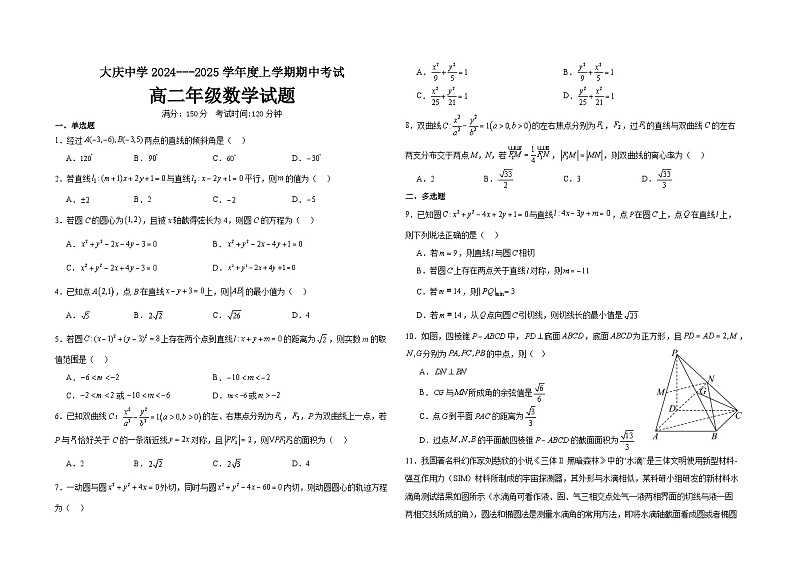 大庆中学 2024---2025 学年度上学期期中考试
高二年级数学试题
满分：150分 考试时间:120分钟
一、单选题
1. 经过 A(-3,-6),B(-3,5) 两点的直线的倾斜角是（ ）
A. 120° B. 90° C. 60° D. -30°
2. 若直线 l₁:(m+1)x+2y+1=0 与直线 l₂:x-2y+1=0 平行，则 m 的值为（ ）
A. ±2 B. 2 C. -2 D. -5
3. 若圆 C 的圆心为 (1,2)，且被 x 轴截得弦长为 4，则圆 C 的方程为（ ）
A. x²+y²-2x-4y-3=0 B. x²+y²-2x-4y+1=0
C. x²+y²-2x+4y-3=0 D. x²+y²-2x+4y+1=0
4. 已知点 A(2,1)，点 B 在直线 x-y+3=0 上，则 |AB| 的最小值为（ ）
A. √5 B. 2√2 C. √26 D. 4
5. 若圆 C:(x-1)²+(y-3)²=8 上存在两个点到直线 l:x+y+m=0 的距离为 √2，则实数 m 的取
值范围是（ ）
A. -6<m<-2 B. -10<m<-2
C. -2<m<2 或 -10<m<-6 D. m<-6 或 m>-2
6. 已知双曲线 C: x²/a²-y²/b²=1(a>0,b>0) 的左、右焦点分别为 F₁，F₂，P 为双曲线上一点，若
P 与 F₁ 恰好关于 C 的一条渐近线 y=2x 对称，且 |PF₂|=2，则 VPF₁F₂ 的面积为（ ）
A. 2 B. 2√2 C. 2√3 D. 4
7. 一动圆与圆 x²+y²+4x=0 外切，同时与圆 x²+y²-4x-60=0 内切，则动圆圆心的轨迹方程
为（ ）
A. x²/9+y²/5=1 B. y²/9+x²/5=1
C. x²/25+y²/21=1 D. y²/25+x²/21=1
8. 双曲线 C: x²/a²-y²/b²=1(a>0,b>0) 的左右焦点分别为 F₁，F₂，过 F₁ 的直线与双曲线 C 的左右
两支分布交于两点 M，N，若 F₁M=1/4F₁N，|F₂M|=|MN|，则双曲线的离心率为（ ）
A. 2 B. √33/2 C. 3 D. √33/3
二、多选题
9. 已知圆 C:x²+y²-4x+2y+1=0 与直线 l:4x-3y+m=0，点 P 在圆 C 上，点 Q 在直线 l 上，
则下列说法正确的是（ ）
A. 若 m=9，则直线 l 与圆 C 相切
B. 若圆 C 上存在两点关于直线 l 对称，则 m=-11
C. 若 m=14，则 |PQ|min=3
D. 若 m=14，从 Q 点向圆 C 引切线，则切线长的最小值是 √23
10. 如图，四棱锥 P-ABCD 中，PD⊥底面 ABCD，底面 ABCD 为正方形，且 PD=AD=2,M，
N,G 分别为 PA,PC,PB 的中点，则（ ）
A. DN⊥BN
B. CG 与 MN 所成角的余弦值是 √6/6
C. 点 G 到平面 PAC 的距离为 √3/3
D. 过点 M,N,B 的平面截四棱锥 P-ABCD 的截面面积为 √13/3
P
M
N
G
D
C
A
B
11. 我国著名科幻作家刘慈欣的小说《三体Ⅱ·黑暗森林》中的“水滴”是三体文明使用新型材料-
强互作用力（SIM）材料所制成的宇宙探测器，其外形与水滴相似，某科研小组研发的新材料水
滴角测试结果如图所示（水滴角可看作液、固、气三相交点处气—液两相界面的切线与液—固
两相交线所成的角），圆法和椭圆法是测量水滴角的常用方法，即将水滴轴截面看成圆或者椭圆